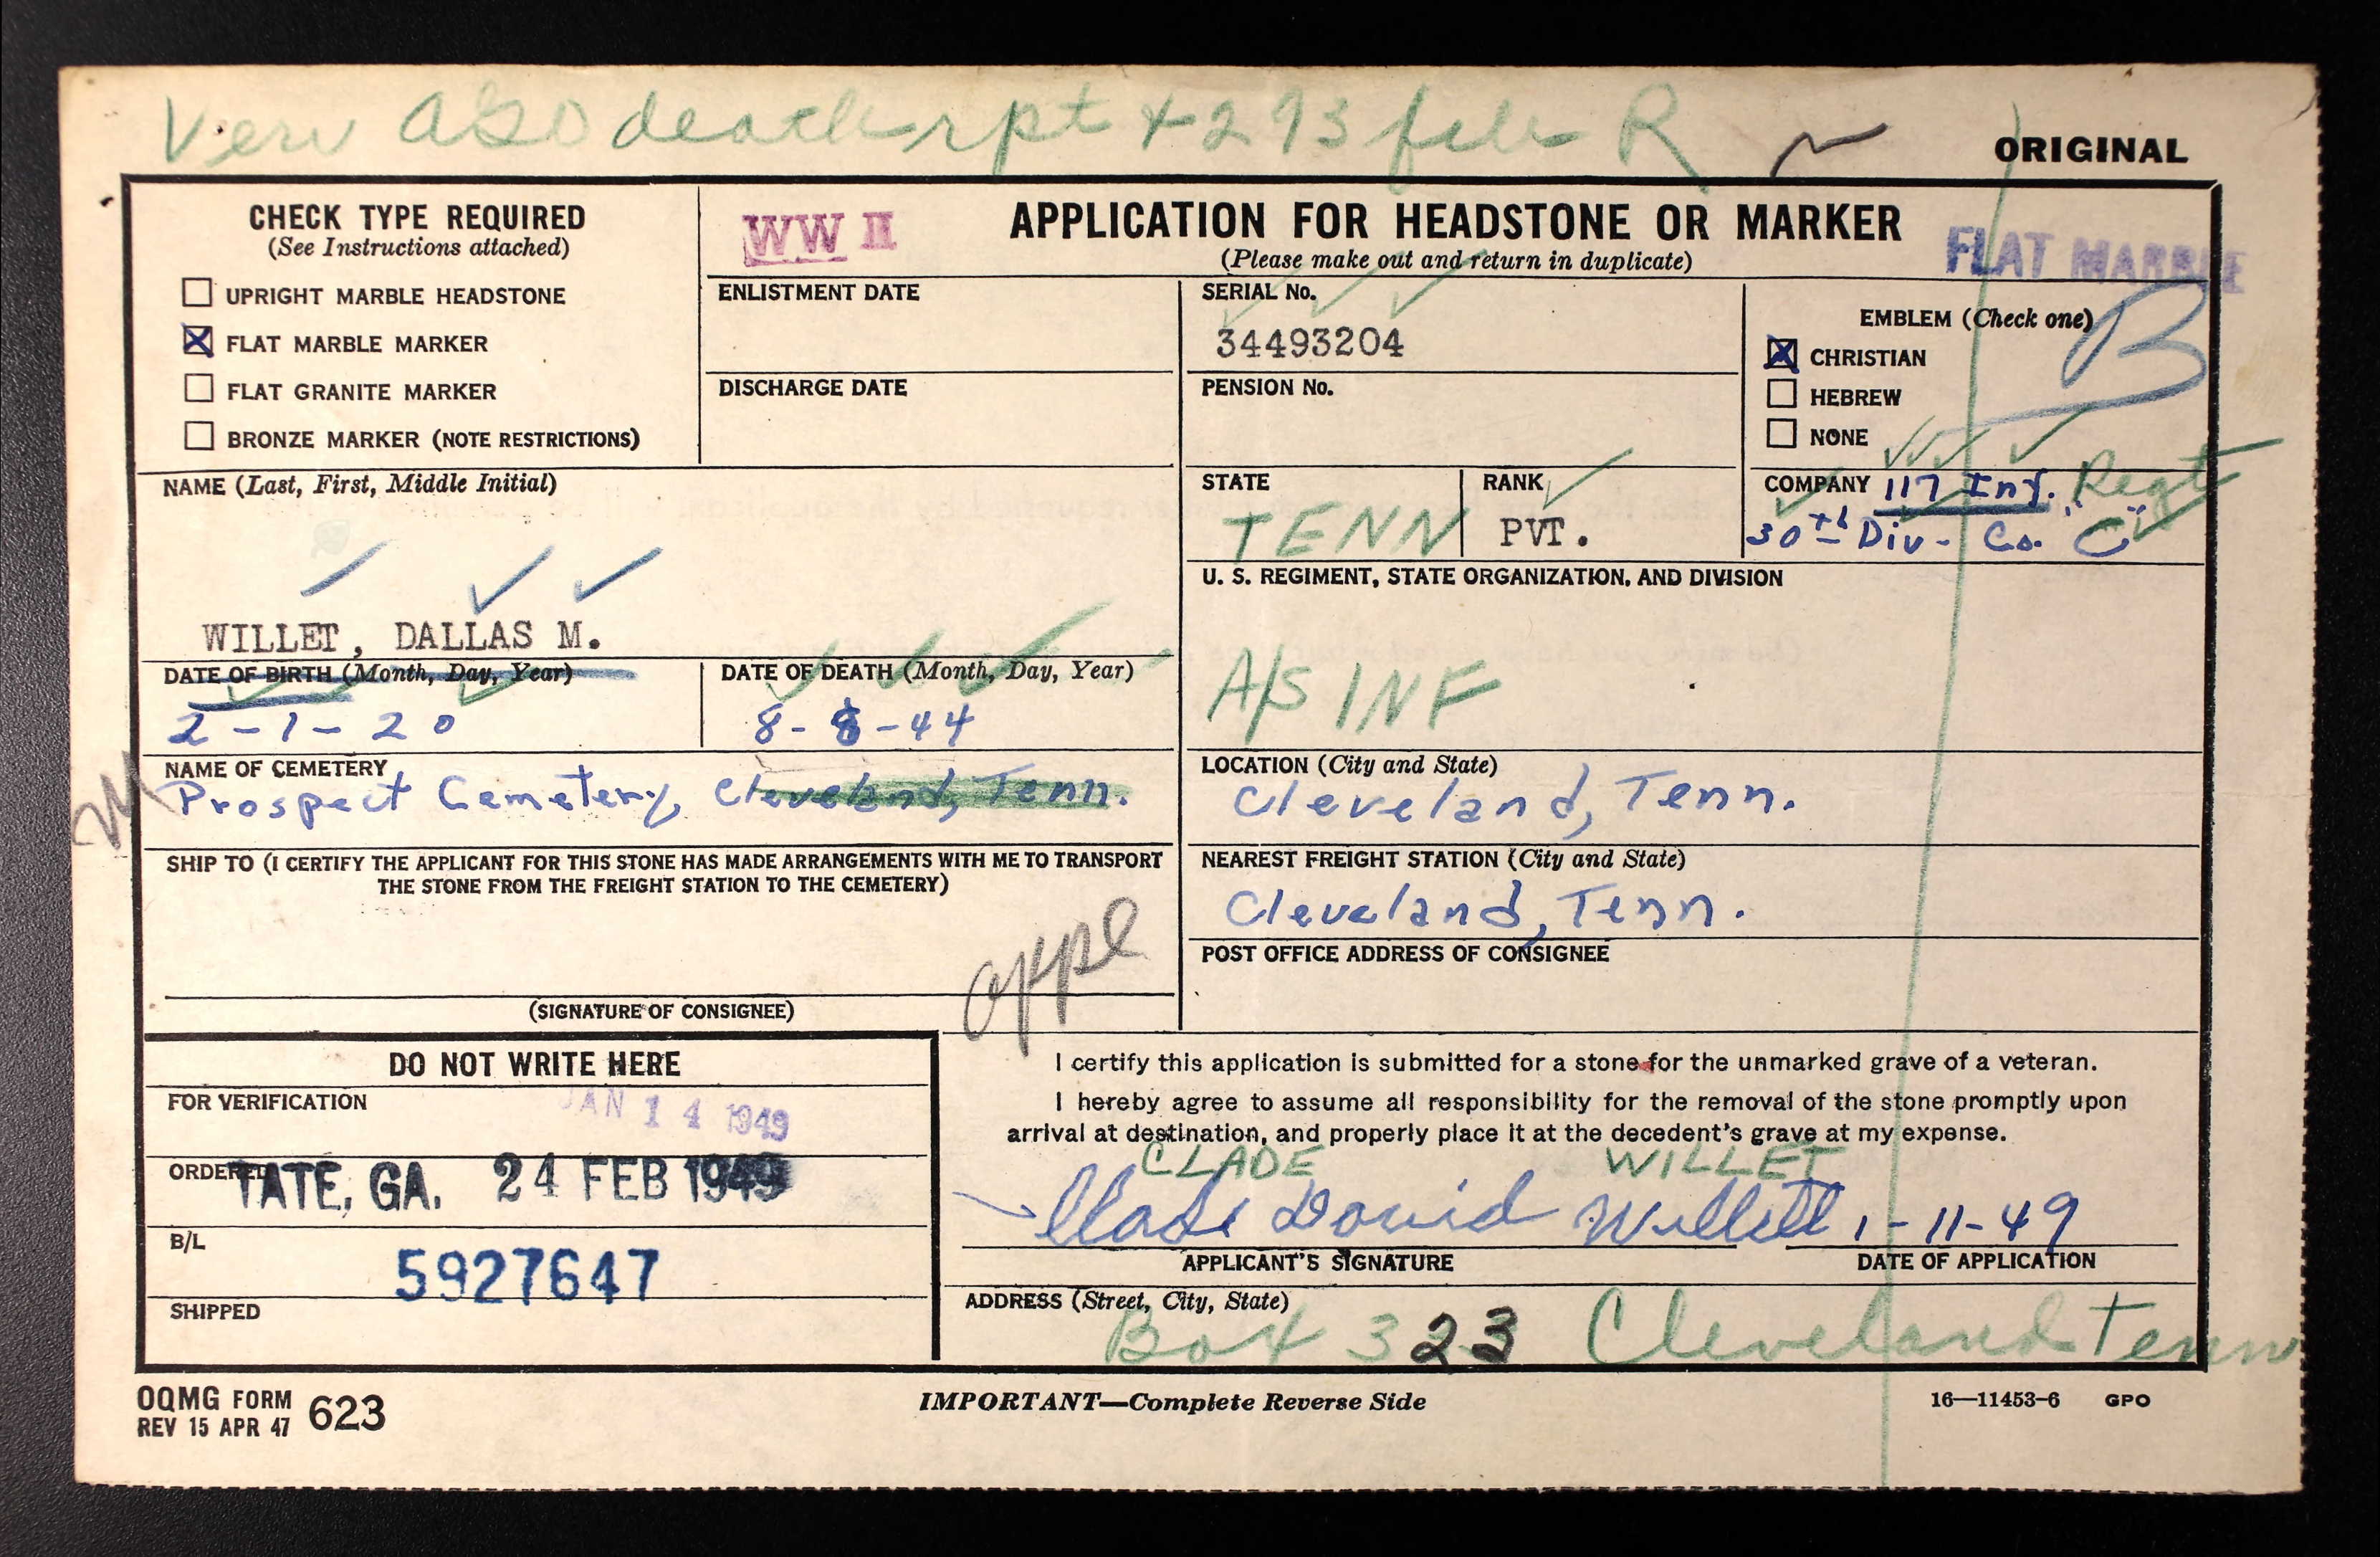 Verv AGO death rpt + 293 file R
ORIGINAL
CHECK TYPE REQUIRED
(See Instructions attached)
UPRIGHT MARBLE HEADSTONE
X FLAT MARBLE MARKER
FLAT GRANITE MARKER
BRONZE MARKER (NOTE RESTRICTIONS)
WW II
APPLICATION FOR HEADSTONE OR MARKER
(Please make out and return in duplicate)
FLAT MARBLE
ENLISTMENT DATE
DISCHARGE DATE
SERIAL No.
34493204
PENSION No.
EMBLEM (Check one)
X CHRISTIAN
HEBREW
NONE
B
NAME (Last, First, Middle Initial)
WILLET, DALLAS M.
STATE
TENN
RANK
PVT.
COMPANY 117 Inf. Regt
30th Div- Co. "C"
U. S. REGIMENT, STATE ORGANIZATION, AND DIVISION
A/S INF
DATE OF BIRTH (Month, Day, Year)
2-1-20
DATE OF DEATH (Month, Day, Year)
8-8-44
NAME OF CEMETERY
Prospect Cemetery, Cleveland, Tenn.
LOCATION (City and State)
Cleveland, Tenn.
SHIP TO (I CERTIFY THE APPLICANT FOR THIS STONE HAS MADE ARRANGEMENTS WITH ME TO TRANSPORT
THE STONE FROM THE FREIGHT STATION TO THE CEMETERY)
appl
(SIGNATURE OF CONSIGNEE)
NEAREST FREIGHT STATION (City and State)
Cleveland, Tenn.
POST OFFICE ADDRESS OF CONSIGNEE
DO NOT WRITE HERE
FOR VERIFICATION
JAN 14 1949
ORDERED
TATE, GA. 24 FEB 1949
B/L
5927647
SHIPPED
I certify this application is submitted for a stone for the unmarked grave of a veteran.
I hereby agree to assume all responsibility for the removal of the stone promptly upon
arrival at destination, and properly place it at the decedent's grave at my expense.
CLADE WILLET
Clade David Willett 1-11-49
APPLICANT'S SIGNATURE
DATE OF APPLICATION
ADDRESS (Street, City, State)
Box 323 Cleveland Tenn
OQMG FORM 623
REV 15 APR 47
IMPORTANT—Complete Reverse Side
16—11453-6 GPO